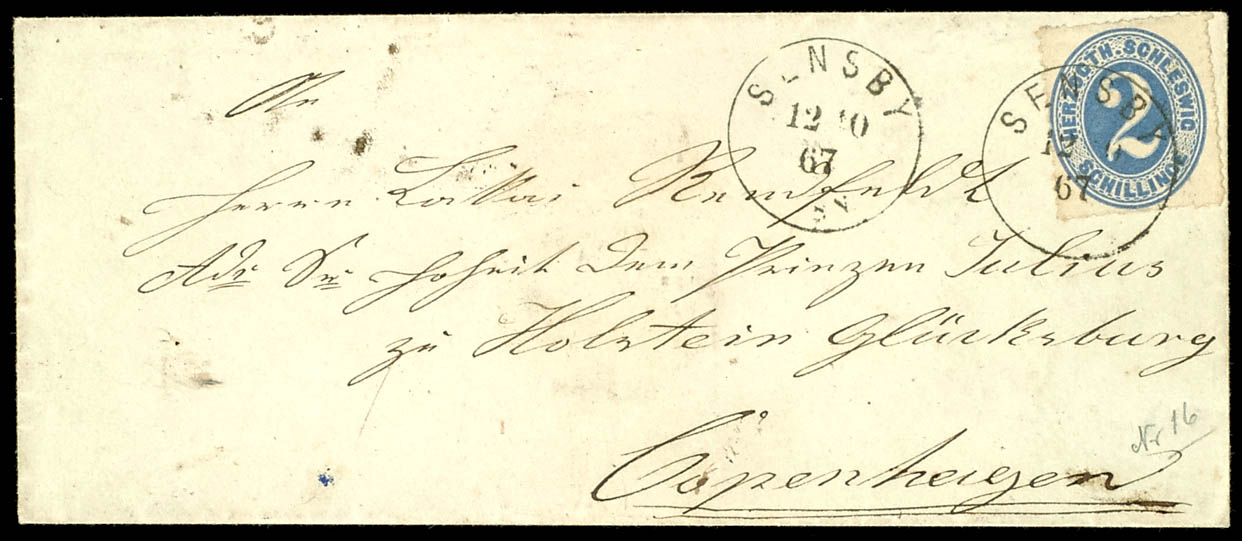 HERZOGTH. SCHLESWIG
2
SCHILLINGE
SENSBY
12 10
67
SENSBY
67
An
Herrn Lakai Remfeldt
Adr Sr Hoheit dem Prinzen Julius
zu Holstein Glücksburg
Copenhagen
Nr 16